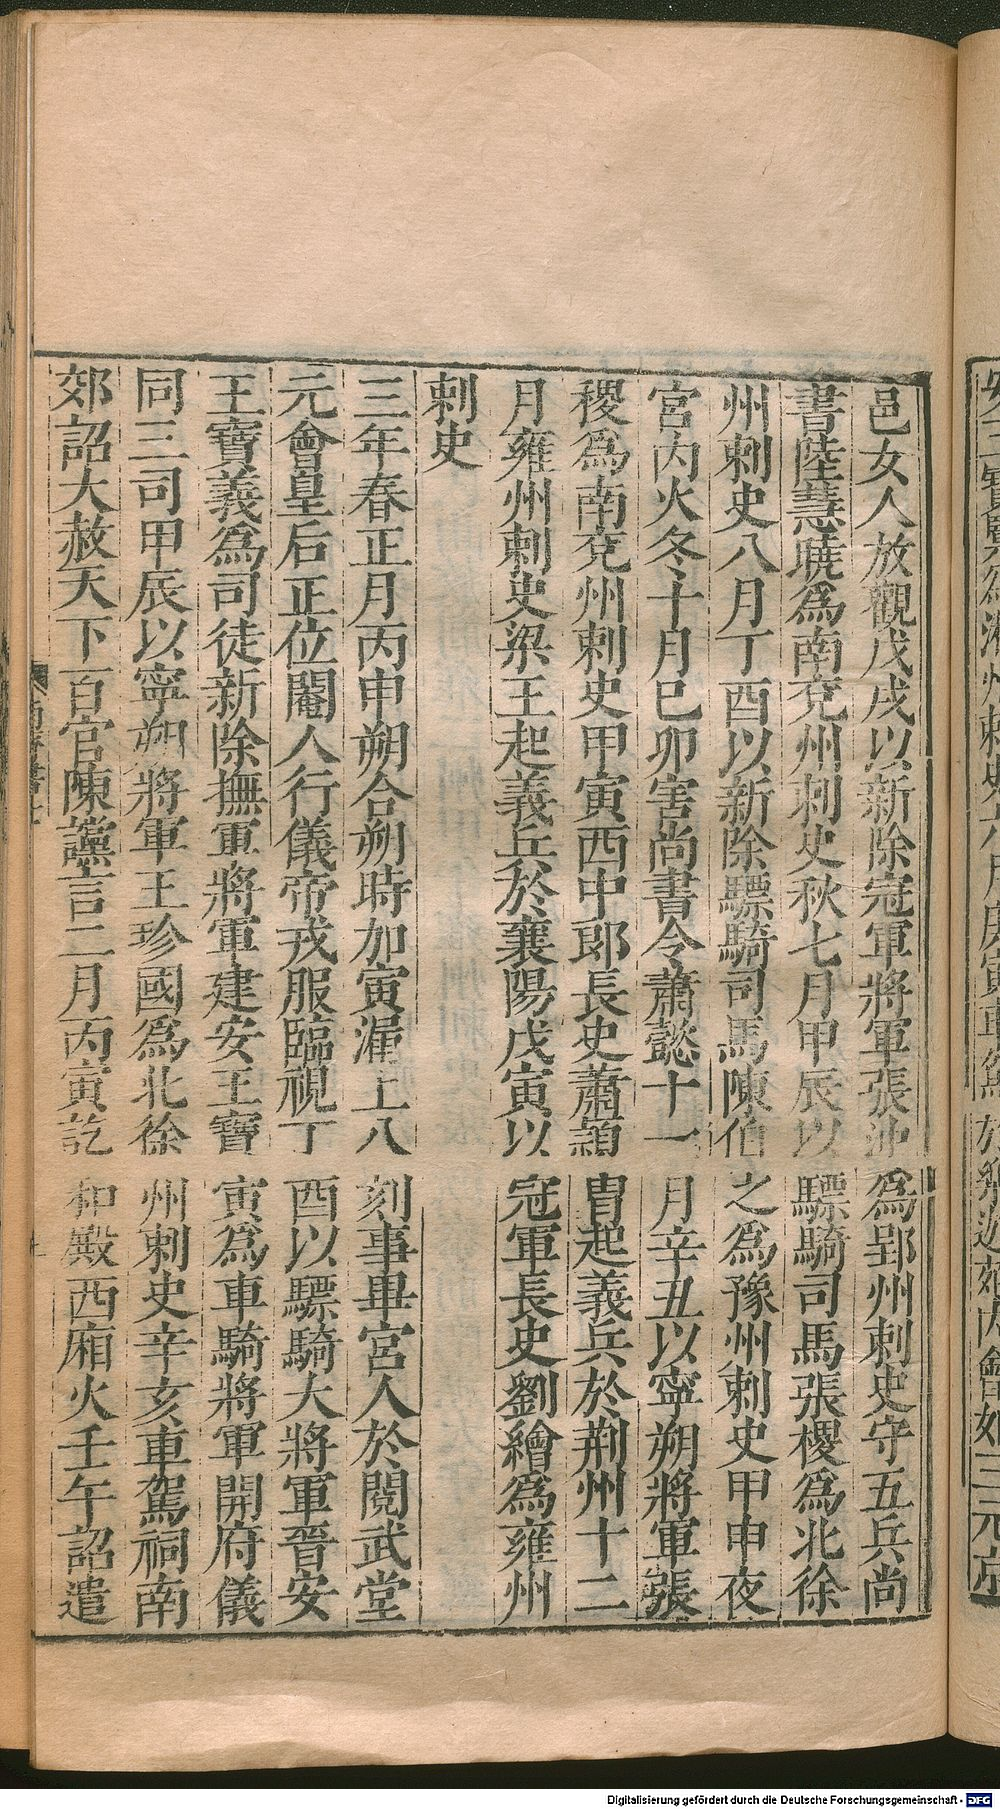 邑女人放觀戊戌以新除冠軍將軍張沖爲郢州刺史守五兵尚
書陸慧曉爲南兗州刺史秋七月甲辰以驃騎司馬張稷爲北徐
州刺史八月丁酉以新除驃騎司馬陳伯之爲豫州刺史甲申夜
宮内火冬十月巳卯害尚書令蕭懿十一月辛丑以寧朔將軍張
稷爲南兗州刺史甲寅西中郎長史蕭穎胄起義兵於荆州十二
月雍州刺史梁王起義兵於襄陽戊寅以冠軍長史劉繪爲雍州
刺史
三年春正月丙申朔合朔時加寅漏上八刻事畢宮人於閱武堂
元會皇后正位閹人行儀帝戎服臨視丁酉以驃騎大將軍晉安
王寶義爲司徒新除撫軍將軍建安王寶寅爲車騎將軍開府儀
同三司甲辰以寧朔將軍王珍國爲北徐州刺史辛亥車駕祠南
郊詔大赦天下百官陳讜言二月丙寅乾和殿西廂火壬午詔遣
Digitalisierung gefördert durch die Deutsche Forschungsgemeinschaft - DFG